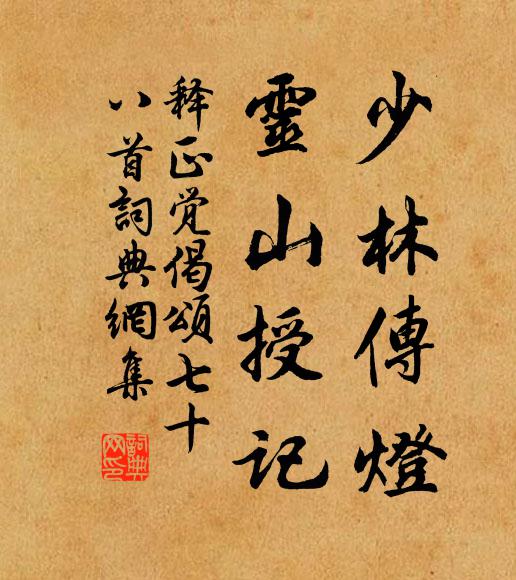 少林傳燈
靈山授記
释正觉偈頌七十
八首詞典網集
詞典網印